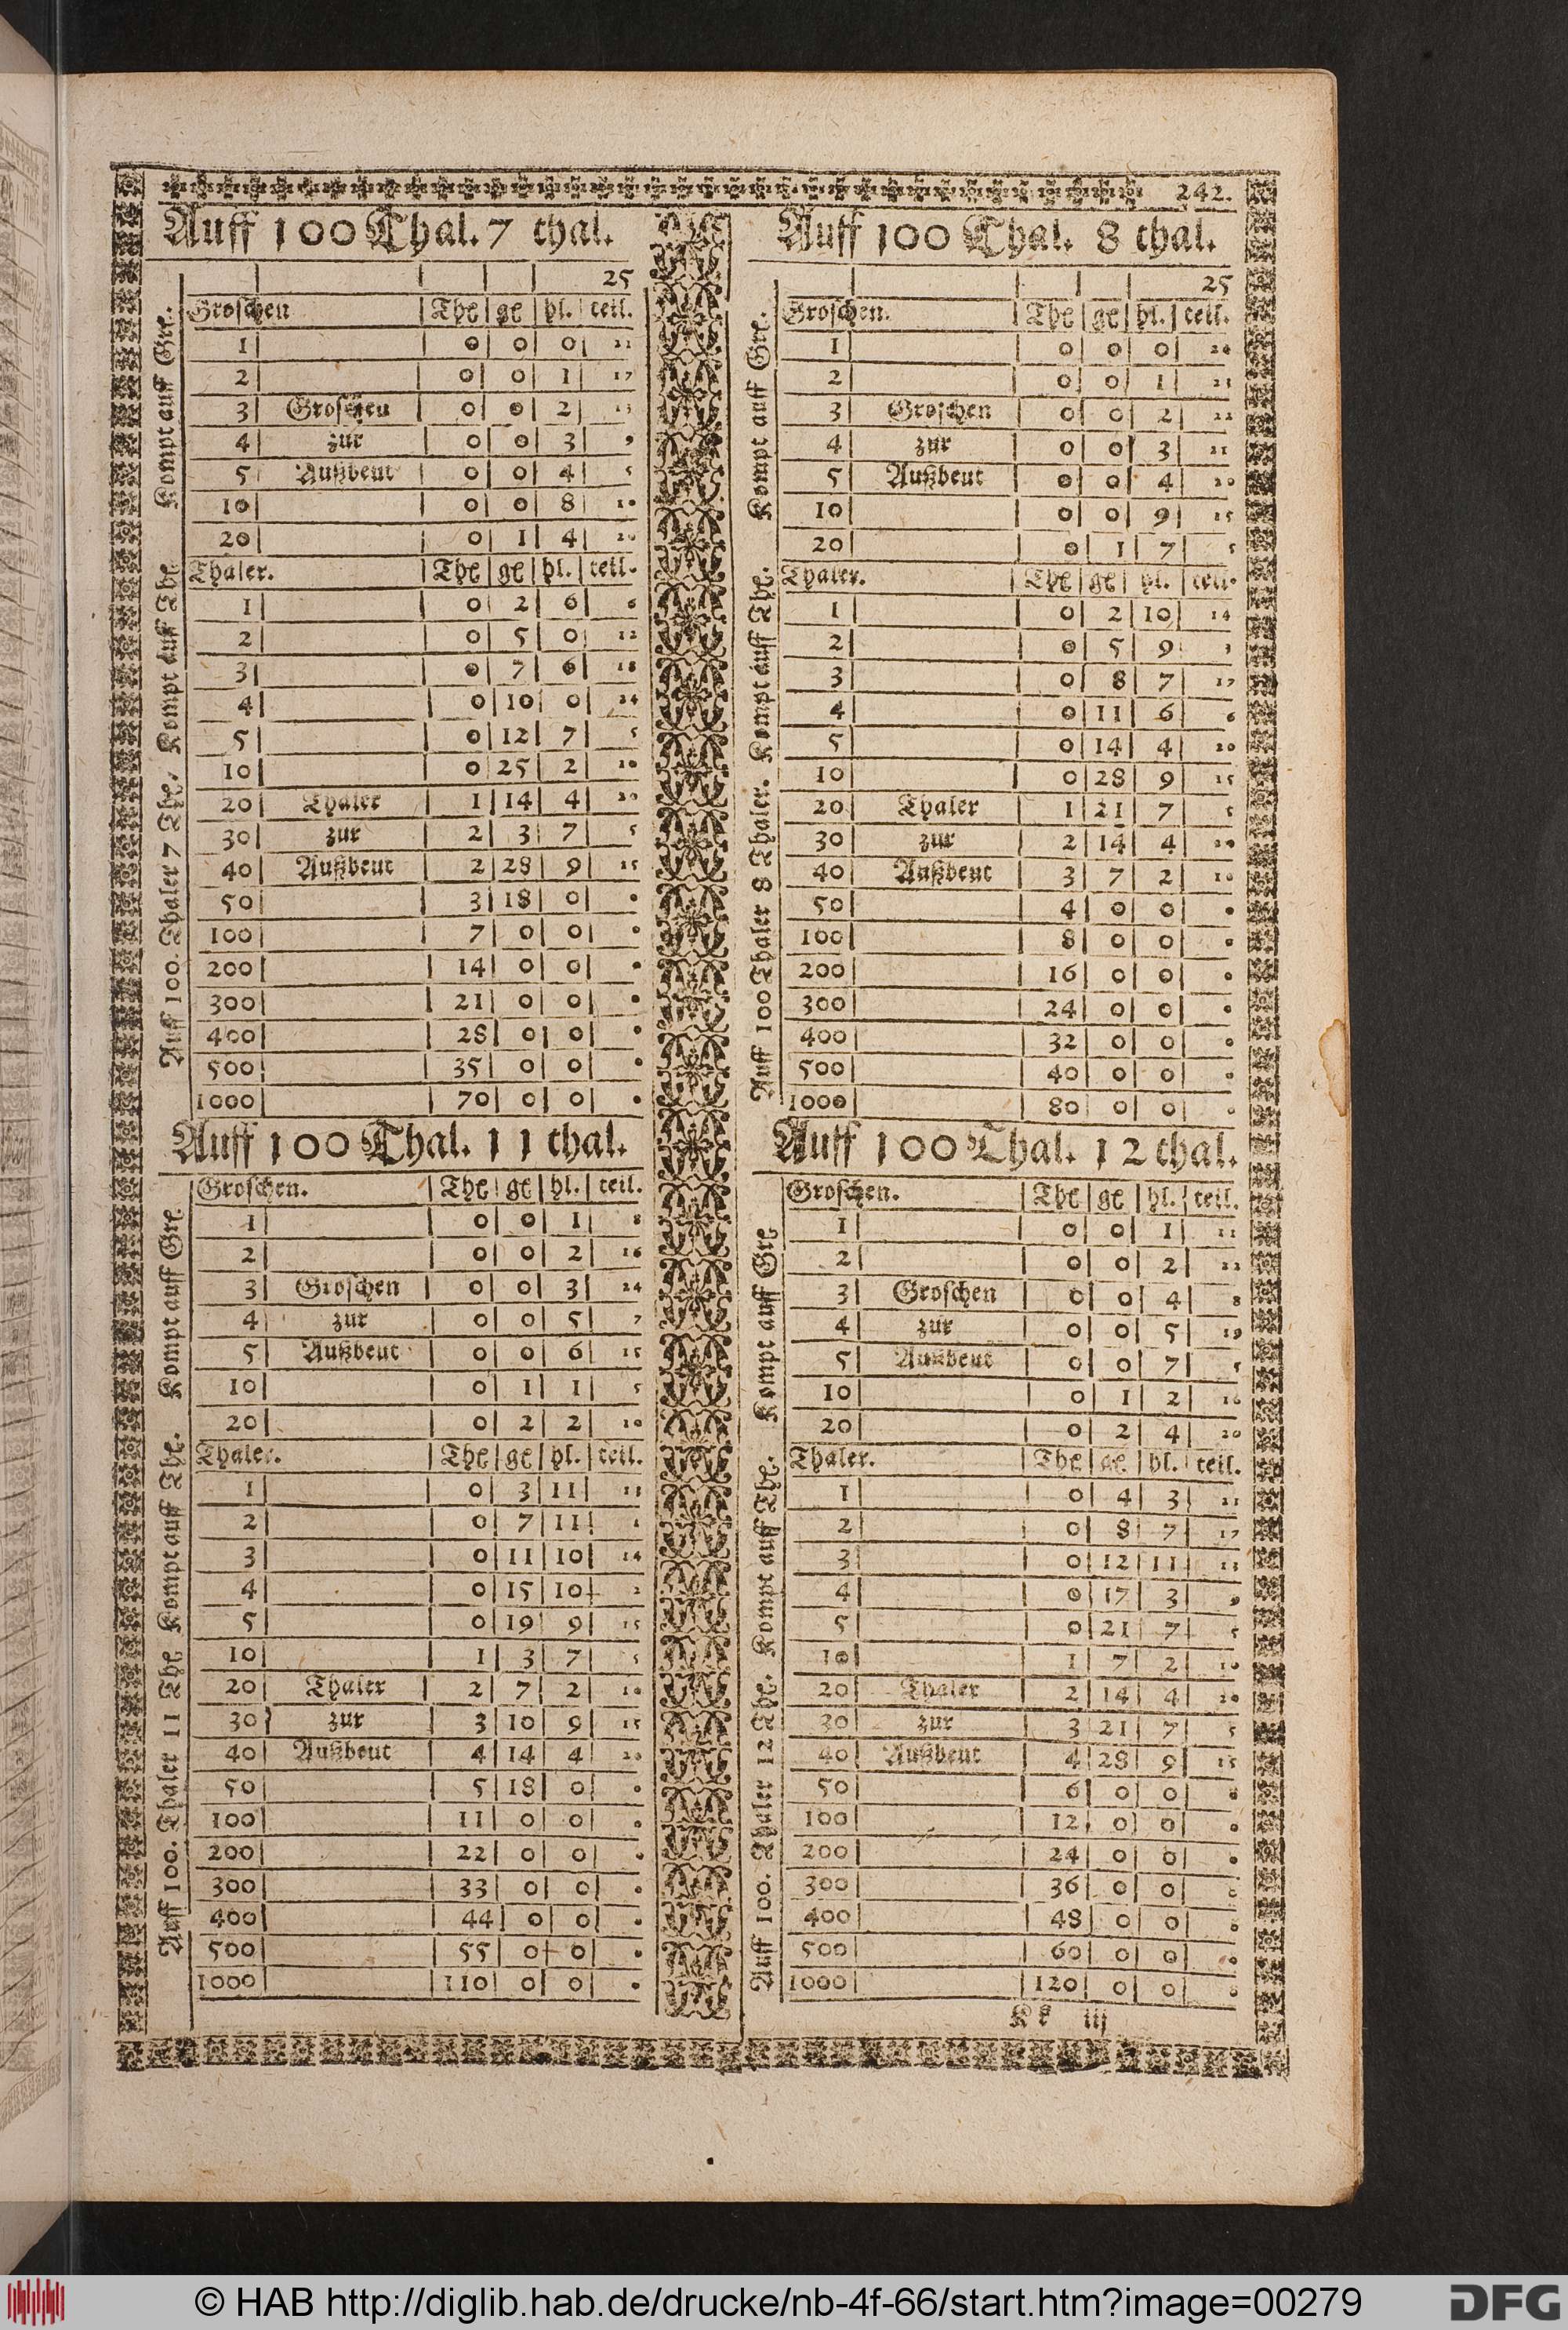 242.
Auff 100 Thal. 7 thal.
25
Groschen Thl gl hl. teil.
1 0 0 0 21
2 0 0 1 17
3 Groschen 0 0 2 13
4 zur 0 0 3 9
5 Außbeut 0 0 4 5
10 0 0 8 10
20 0 1 4 20
Thaler. Thl gl hl. teil.
1 0 2 6 6
2 0 5 0 12
3 0 7 6 18
4 0 10 0 24
5 0 12 7 5
10 0 25 2 10
20 Thaler 1 14 4 20
30 zur 2 3 7 5
40 Außbeut 2 28 9 15
50 3 18 0 0
100 7 0 0 0
200 14 0 0 0
300 21 0 0 0
400 28 0 0 0
500 35 0 0 0
1000 70 0 0 0
Auff 100. Thaler 7 Thl. Kompt auff Thl. Kompt auff Grl.
Auff 100 Thal. 8 thal.
25
Groschen. Thl gl hl. teil.
1 0 0 0 24
2 0 0 1 23
3 Groschen 0 0 2 22
4 zur 0 0 3 21
5 Außbeut 0 0 4 20
10 0 0 9 15
20 0 1 7 5
Thaler. Thl gl hl. teil.
1 0 2 10 14
2 0 5 9 3
3 0 8 7 17
4 0 11 6 6
5 0 14 4 20
10 0 28 9 15
20 Thaler 1 21 7 5
30 zur 2 14 4 20
40 Außbeut 3 7 2 10
50 4 0 0 0
100 8 0 0 0
200 16 0 0 0
300 24 0 0 0
400 32 0 0 0
500 40 0 0 0
1000 80 0 0 0
Auff 100 Thaler 8 Thaler. Kompt auff Thl. Kompt auff Grl.
Auff 100 Thal. 11 thal.
Groschen. Thl gl hl. teil.
1 0 0 1 8
2 0 0 2 16
3 Groschen 0 0 3 24
4 zur 0 0 5 7
5 Außbeut 0 0 6 15
10 0 1 1 5
20 0 2 2 10
Thaler. Thl gl hl. teil.
1 0 3 11 13
2 0 7 11 1
3 0 11 10 14
4 0 15 10 2
5 0 19 9 15
10 1 3 7 5
20 Thaler 2 7 2 10
30 zur 3 10 9 15
40 Außbeut 4 14 4 20
50 5 18 0 0
100 11 0 0 0
200 22 0 0 0
300 33 0 0 0
400 44 0 0 0
500 55 0 0 0
1000 110 0 0 0
Auff 100. Thaler 11 Thl Kompt auff Thl. Kompt auff Grl.
Auff 100 Thal. 12 thal.
Groschen. Thl gl hl. teil.
1 0 0 1 11
2 0 0 2 22
3 Groschen 0 0 4 8
4 zur 0 0 5 19
5 Außbeut 0 0 7 5
10 0 1 2 10
20 0 2 4 20
Thaler. Thl gl hl. teil.
1 0 4 3 21
2 0 8 7 17
3 0 12 11 13
4 0 17 3 9
5 0 21 7 5
10 1 7 2 10
20 Thaler 2 14 4 20
30 zur 3 21 7 5
40 Außbeut 4 28 9 15
50 6 0 0 0
100 12 0 0 0
200 24 0 0 0
300 36 0 0 0
400 48 0 0 0
500 60 0 0 0
1000 120 0 0 0
Auff 100. Thaler 12 Thl. Kompt auff Thl. Kompt auff Grl
Kk iij
© HAB http://diglib.hab.de/drucke/nb-4f-66/start.htm?image=00279
DFG